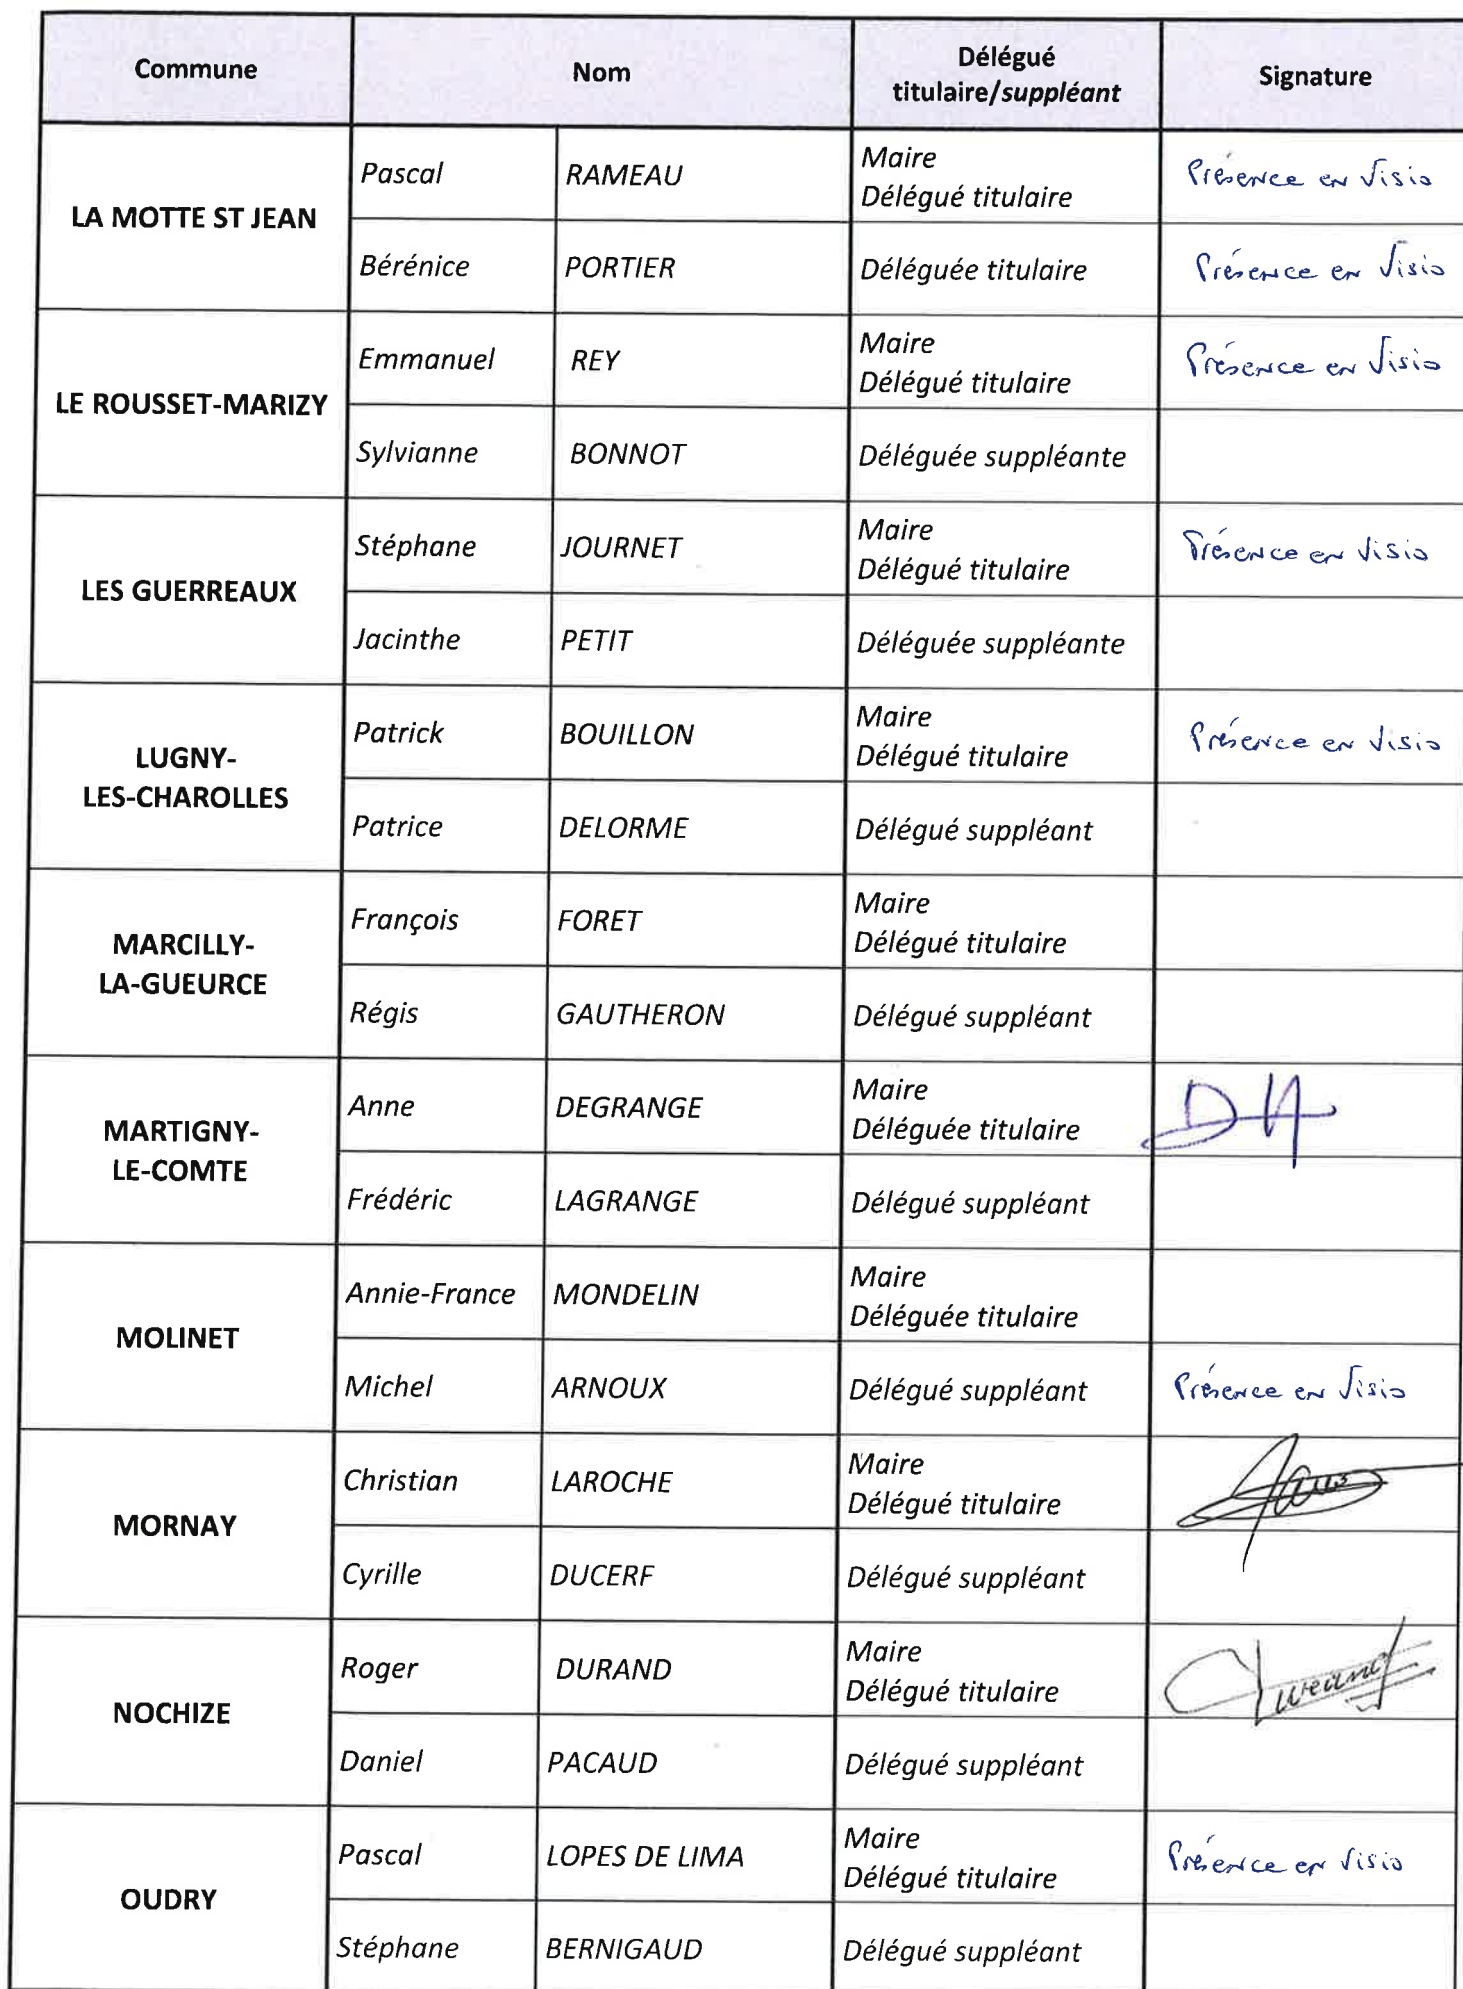 Commune
Nom
Délégué
titulaire/suppléant
Signature
LA MOTTE ST JEAN
Pascal
RAMEAU
Maire
Délégué titulaire
Présence en Visio
Bérénice
PORTIER
Déléguée titulaire
Présence en Visio
LE ROUSSET-MARIZY
Emmanuel
REY
Maire
Délégué titulaire
Présence en Visio
Sylvianne
BONNOT
Déléguée suppléante
LES GUERREAUX
Stéphane
JOURNET
Maire
Délégué titulaire
Présence en Visio
Jacinthe
PETIT
Déléguée suppléante
LUGNY-
LES-CHAROLLES
Patrick
BOUILLON
Maire
Délégué titulaire
Présence en Visio
Patrice
DELORME
Délégué suppléant
MARCILLY-
LA-GUEURCE
François
FORET
Maire
Délégué titulaire
Régis
GAUTHERON
Délégué suppléant
MARTIGNY-
LE-COMTE
Anne
DEGRANGE
Maire
Déléguée titulaire
DA
Frédéric
LAGRANGE
Délégué suppléant
MOLINET
Annie-France
MONDELIN
Maire
Déléguée titulaire
Michel
ARNOUX
Délégué suppléant
Présence en Visio
MORNAY
Christian
LAROCHE
Maire
Délégué titulaire
Cyrille
DUCERF
Délégué suppléant
NOCHIZE
Roger
DURAND
Maire
Délégué titulaire
Durand
Daniel
PACAUD
Délégué suppléant
OUDRY
Pascal
LOPES DE LIMA
Maire
Délégué titulaire
Présence en Visio
Stéphane
BERNIGAUD
Délégué suppléant